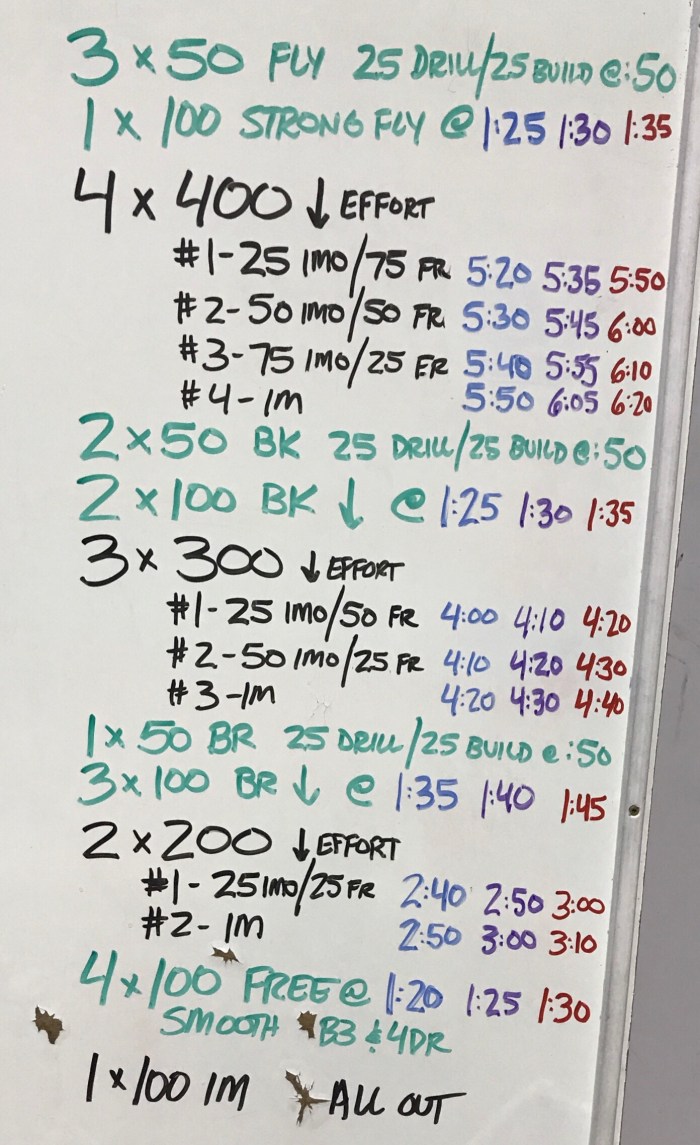 3 x 50 FLY 25 DRILL/25 BUILD @ :50
1 x 100 STRONG FLY @ 1:25 1:30 1:35
4 x 400 ↓ EFFORT
#1-25 IMO/75 FR 5:20 5:35 5:50
#2-50 IMO/50 FR 5:30 5:45 6:00
#3-75 IMO/25 FR 5:40 5:55 6:10
#4-IM 5:50 6:05 6:20
2 x 50 BK 25 DRILL/25 BUILD @ :50
2 x 100 BK ↓ @ 1:25 1:30 1:35
3 x 300 ↓ EFFORT
#1-25 IMO/50 FR 4:00 4:10 4:20
#2-50 IMO/25 FR 4:10 4:20 4:30
#3-IM 4:20 4:30 4:40
1 x 50 BR 25 DRILL/25 BUILD @ :50
3 x 100 BR ↓ @ 1:35 1:40 1:45
2 x 200 ↓ EFFORT
#1-25 IMO/25 FR 2:40 2:50 3:00
#2-IM 2:50 3:00 3:10
4 x 100 FREE @ 1:20 1:25 1:30
SMOOTH B3 & 4DR
1 x 100 IM ALL OUT